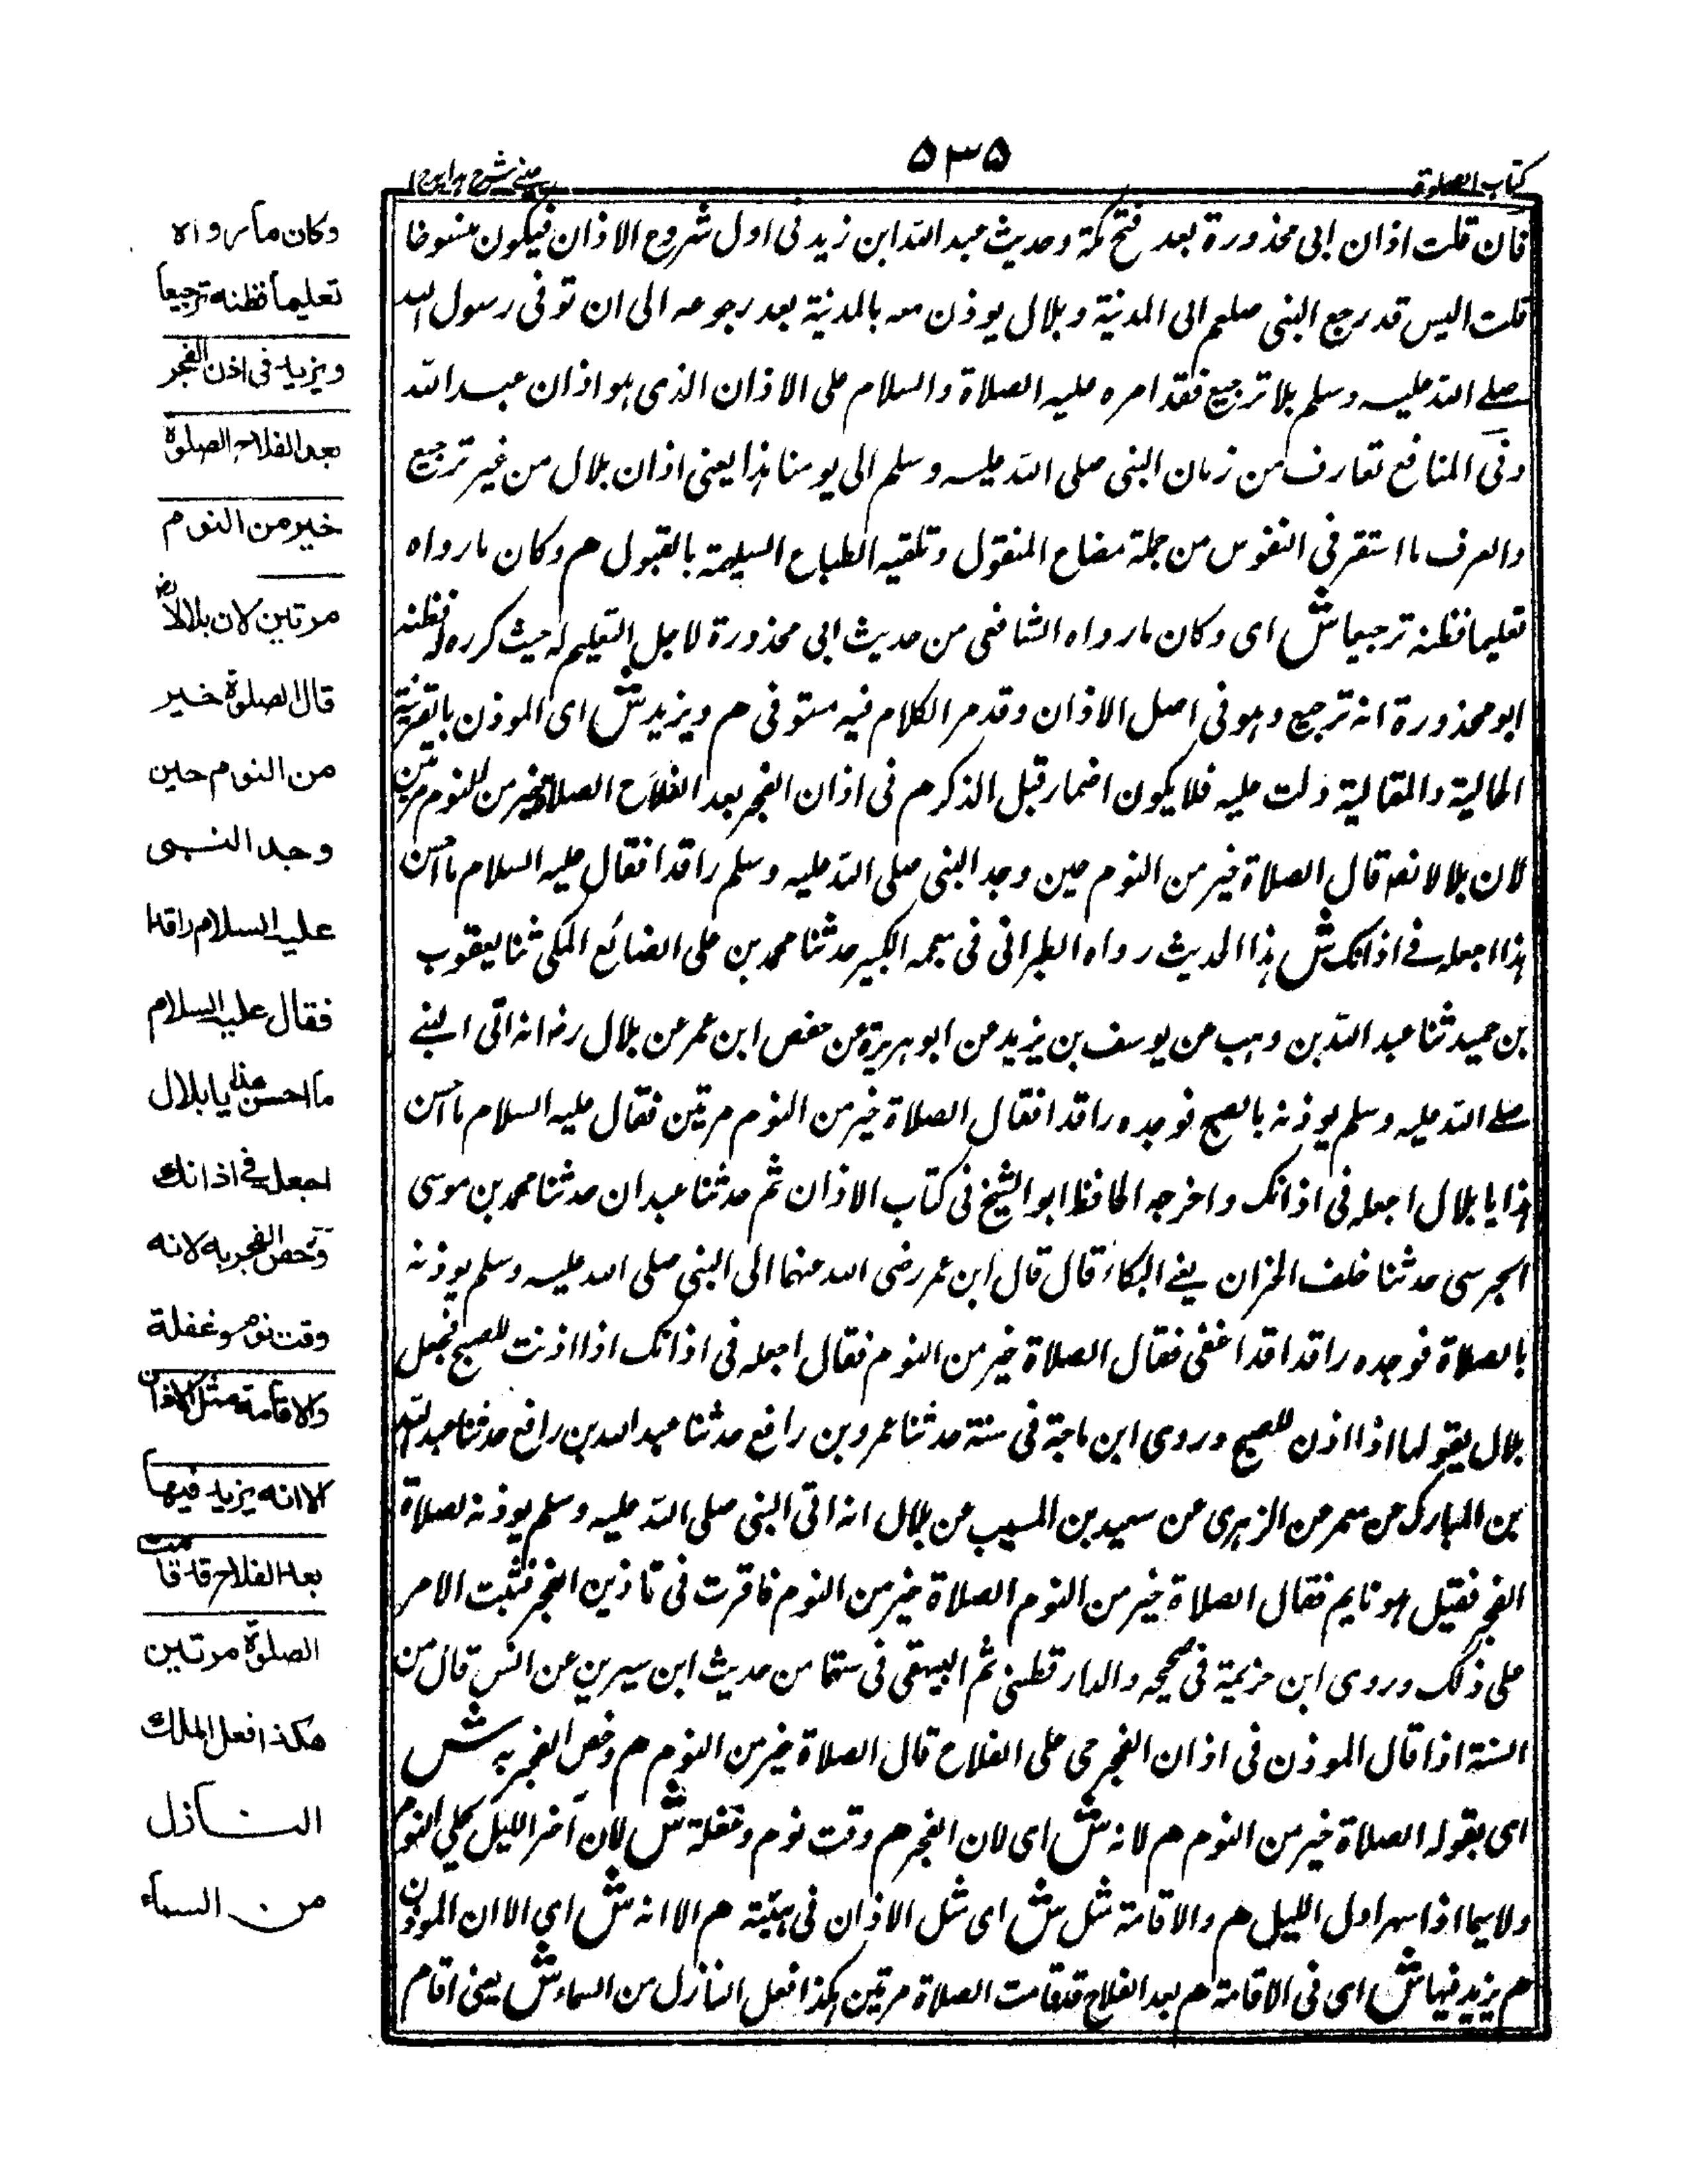 كتاب الصلوة
٥٣٥
عينى شرح هداية ج ١
فان قلت اذان ابى محذورة بعد فتح مكة وحديث عبد الله ابن زيد فى اول شروع الاذان فيكون منسوخا
قلت اليس قد رجع النبى صلعم الى المدنية وبلال يوذن معه بالمدنية بعد رجوعه الى ان توفى رسول الله
صلے الله عليه وسلم بلا ترجيع فقد امره عليه الصلاة والسلام على الاذان الذى هو اذان عبد الله
وفى المنافع تعارف من زمان النبى صلى الله عليه وسلم الى يومنا هذا يعنى اذان بلال من غير ترجيع
والعرف ما استقر فى النفوس من جملة مضاع المنقول وتلقيه الطباع السليمة بالقبول هم وكان ما رواه
تعليما فظنه ترجيعا ش اى وكان ما رواه الشافعى من حديث ابى محذورة لاجل التعليم له حيث كرره فظنه
ابو محذورة انه ترجيع وهو فى اصل الاذان وقد مر الكلام فيه مستوفى هم ويزيد ش اى الموذن بالقرينة
الحالية والمقالية دلت عليه فلا يكون اضمار قبل الذكر هم فى اذان الفجر بعد الفلاح الصلاة خير من النوم مرتين
لان بلالا نعم قال الصلاة خير من النوم حين وجد النبى صلى الله عليه وسلم راقدا فقال عليه السلام ما احسن
هذا اجعله فے اذانك ش هذا الحديث رواه الطبرانى فى معجمه الكبير حدثنا محمد بن على الصائغ المكى ثنا يعقوب
بن حميد ثنا عبد الله بن وهب عن يوسف بن يزيد عن ابو هريرة عن حفص ابن عمر عن بلال رض انه اتى النبے
صلے الله عليه وسلم يوذنه بالصبح فوجده راقدا فقال الصلاة خير من النوم مرتين فقال عليه السلام ما احسن
هذا يا بلال اجعله فى اذانك واخرجه الحافظ ابو الشيخ فى كتاب الاذان ثم حدثنا عبدان حدثنا محمد بن موسى
الجرسى حدثنا خلف الخزان يعنے البكاء قال قال ابن عمر رضى الله عنهما الى النبى صلى الله عليه وسلم يوذنه
بالصلاة فوجده راقدا قد اغفى فقال الصلاة خير من النوم فقال اجعله فى اذانك اذا اذنت للصبح فجعل
بلال يقولها اذا اذن للصبح وروى ابن ماجة فى سنة حدثنا عمرو بن رافع حدثنا عبد الله بن رافع حدثنا عبد الله
بن المبارك عن معمر عن الزهرى عن سعيد بن المسيب عن بلال انه اتى النبى صلى الله عليه وسلم يوذنه لصلاة
الفجر فقيل هو نايم فقال الصلاة خير من النوم الصلاة خير من النوم فاقرت فى تاذين الفجر فثبت الامر
على ذلك وروى ابن خزيمة فى صحيحه والدارقطنى ثم البيهقى فى سننهما من حديث ابن سيرين عن انس قال من
السنة اذا قال الموذن فى اذان الفجر حى على الفلاح قال الصلاة خير من النوم هم وخص الفجر به ش
اى بقوله الصلاة خير من النوم هم لانه ش اى لان الفجر هم وقت نوم وغفلة ش لان آخر الليل محل النوم
ولاسيما اذا سهر اول الليل هم والاقامة مثل ش اى مثل الاذان فى هيئته هم الا انه ش اى الا ان الموذن
هم يزيد فيها ش اى فى الاقامة هم بعد الفلاح قد قامت الصلاة مرتين هكذا فعل النازل من السماء ش يعنى اقام
وكان ما رواه
تعليما فظنه ترجيعا
ويزيد فى اذن الفجر
بعد الفلاح الصلوة
خير من النوم
مرتين لان بلالا رض
قال الصلوة خير
من النوم حين
وجد النبى
عليه السلام راقدا
فقال عليه السلام
ما احسن هذا يا بلال
اجعله فے اذانك
وتخص الفجر به لانه
وقت نوم وغفلة
والاقامة مثل الاذان
الا انه يزيد فيها
بعد الفلاح قد قامت
الصلوة مرتين
هكذا فعل الملك
النازل
من السماء